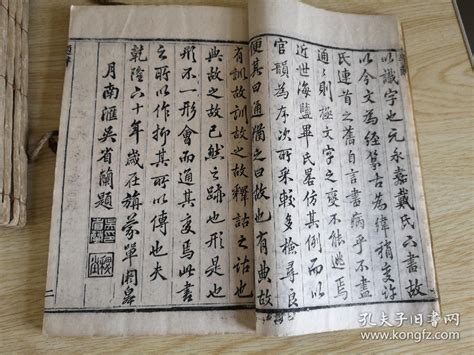 以識字也元永嘉戴氏六書故
以今文為經篆古為緯稍變許
氏連首之舊自言書病乎不盡
通之則極文字之變不能逃焉
近世海鹽畢氏畧仿其例而以
官韻為序次所采較多檢尋良
便其曰通猶之曰故也有曲故
有訓故訓故之故釋詁之詁也
典故之故已然之跡也形是也
形不一形會而通其變焉此書
之所以作抑其所以傳也夫
乾隆六十年歲在旃蒙單閼皋
月南滙吳省蘭題
二
孔夫子旧书网
kongfz.com